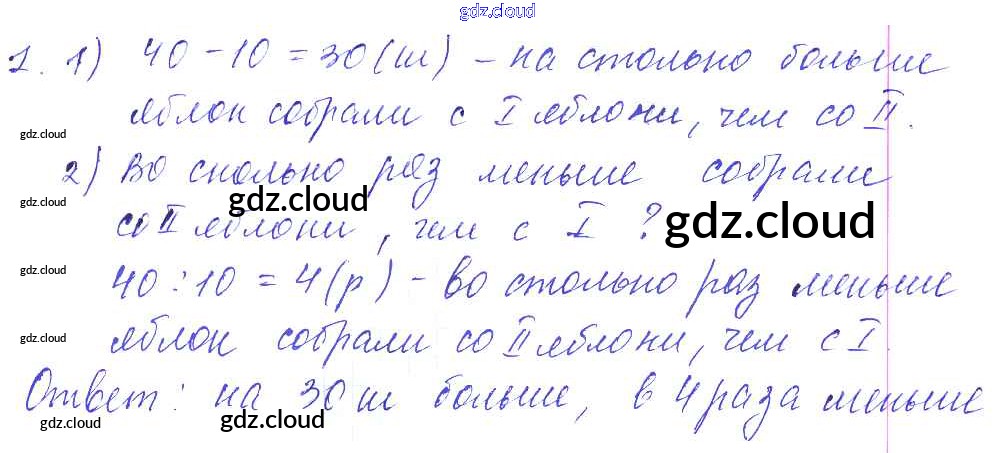 gdz.cloud
1. 1) 40 - 10 = 30 (ш) - на столько больше
яблок собрали с I яблони, чем со II.
gdz.cloud
2) Во сколько раз меньше собрали
gdz.cloud gdz.cloud gdz.cloud
со II яблони, чем с I ?
gdz.cloud
40 : 10 = 4 (р) - во столько раз меньше
gdz.cloud
яблок собрали со II яблони, чем с I.
Ответ: на 30 ш больше, в 4 раза меньше
gdz.cloud gdz.cloud gdz.cloud gdz.cloud